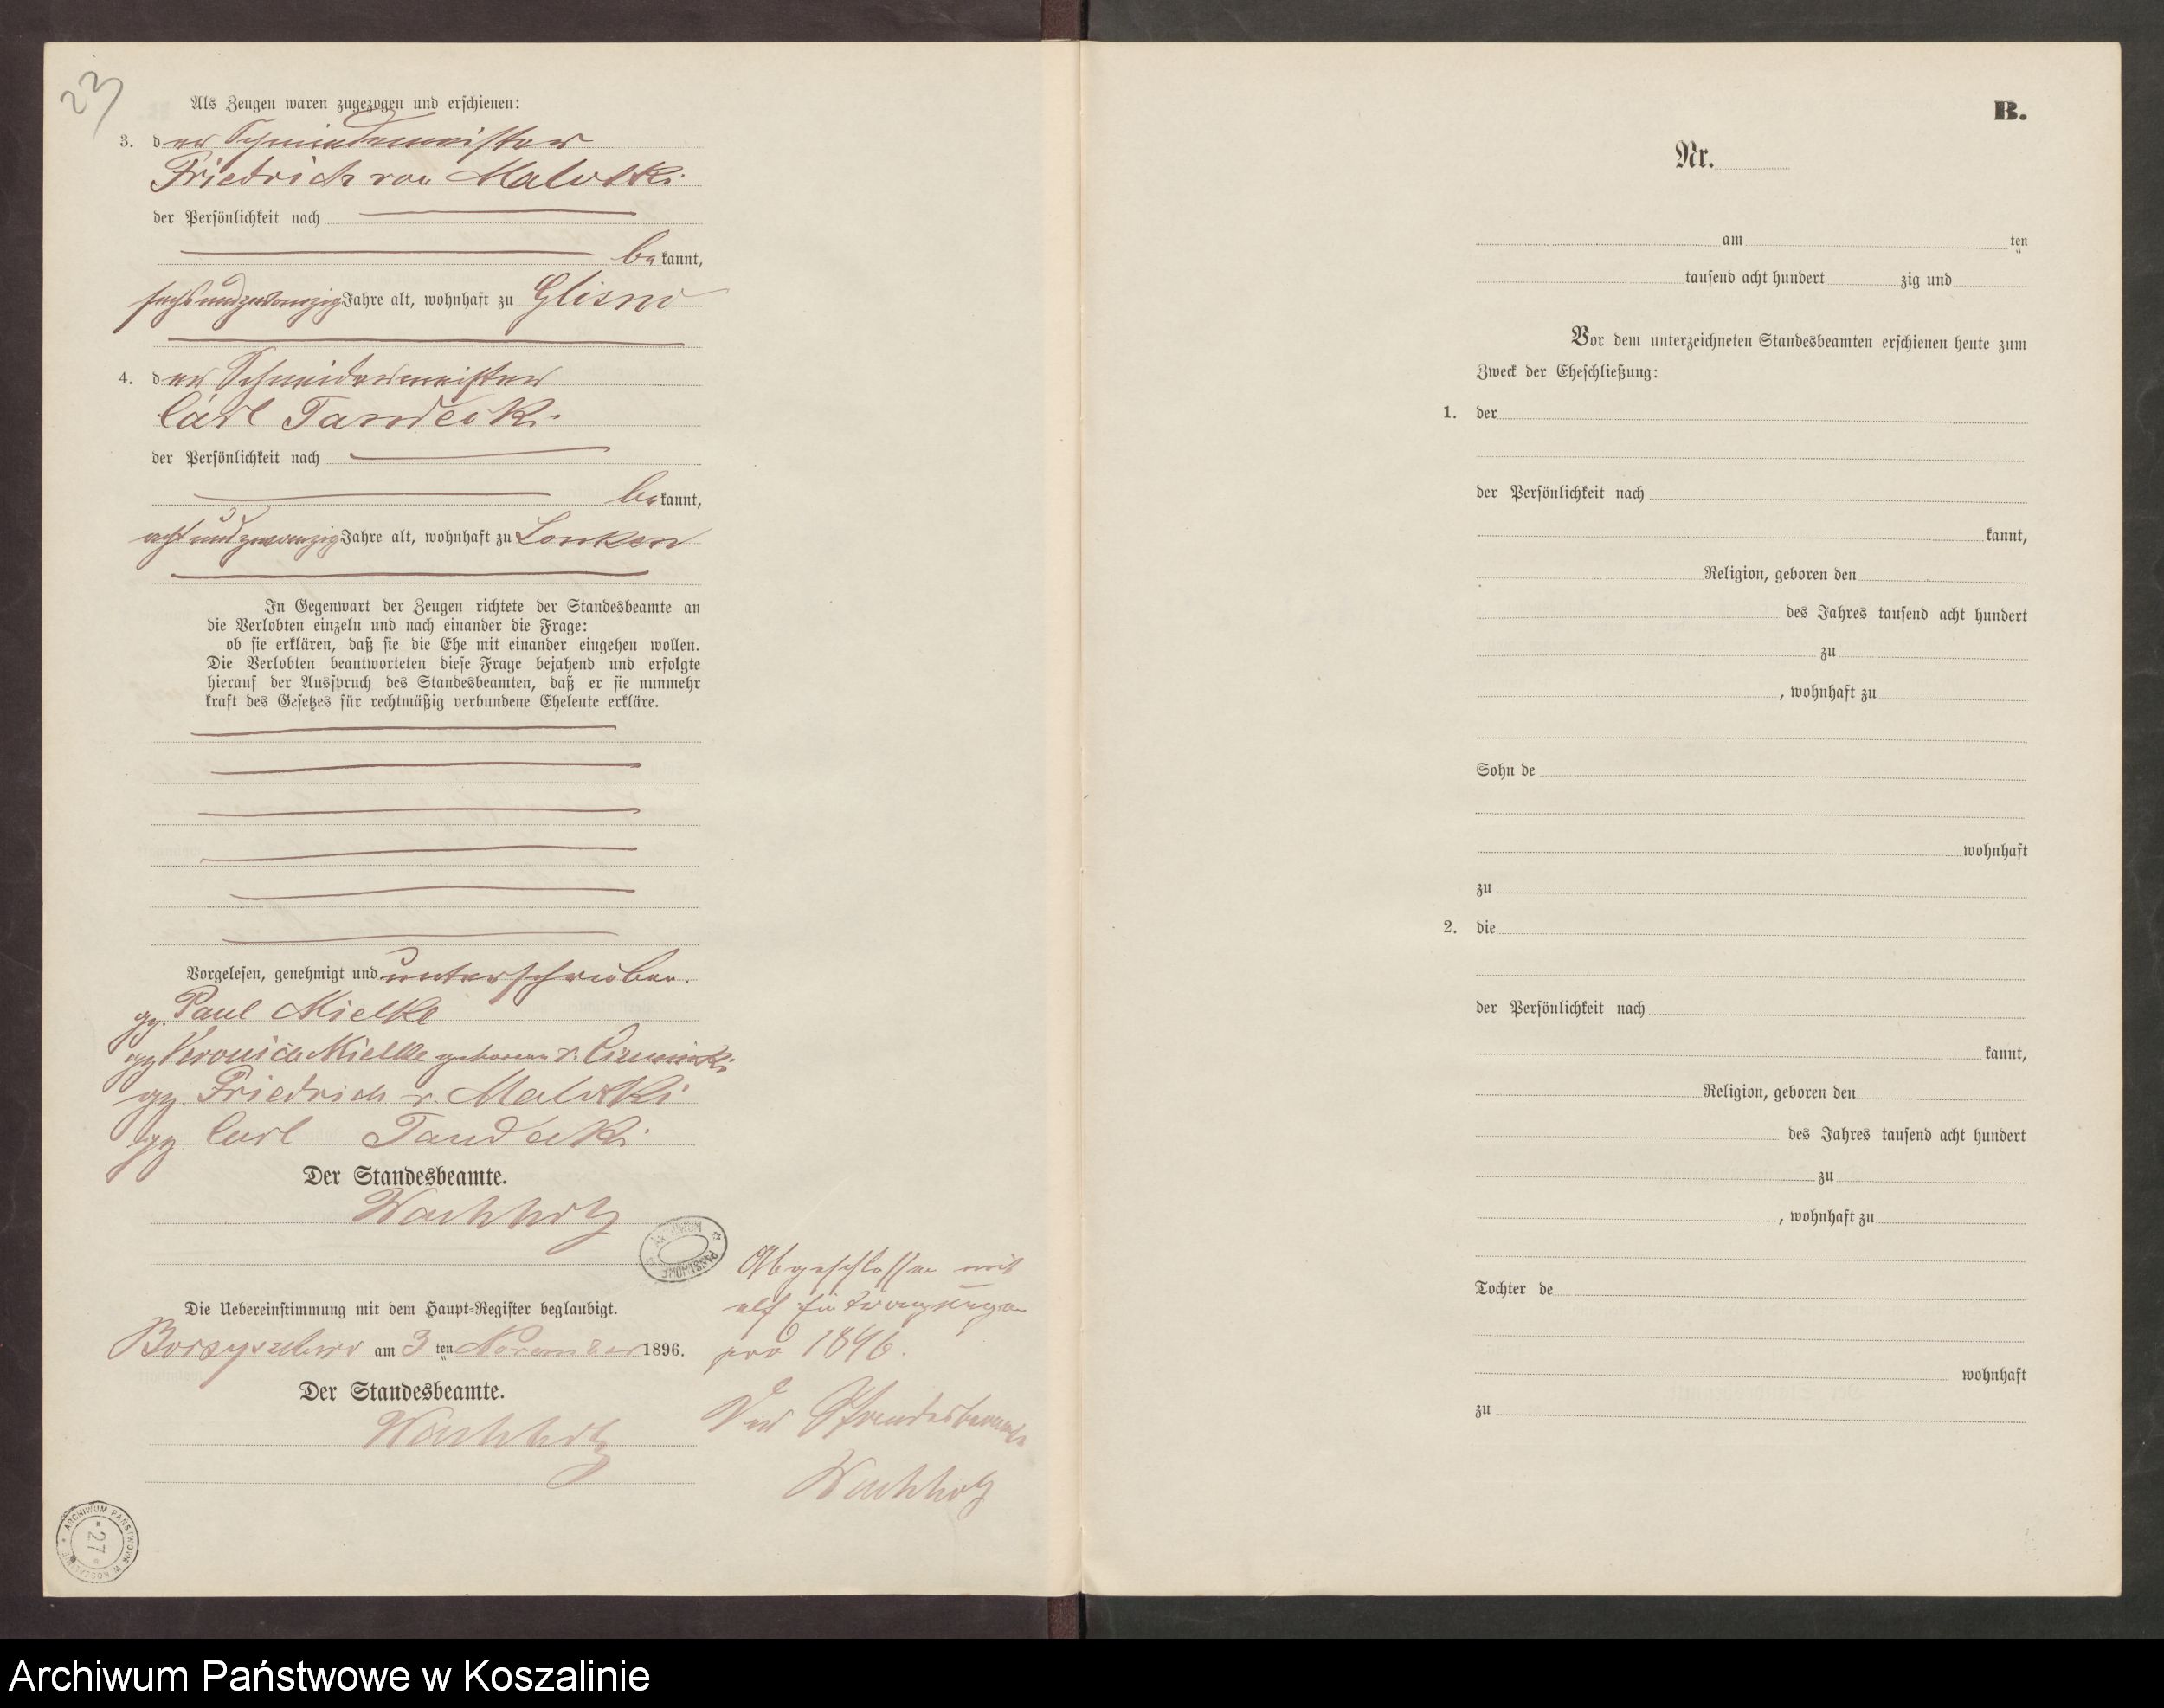 23
Als Zeugen waren zugezogen und erschienen:
3. der Schmiedemeister
Friedrich von Malotki
der Persönlichkeit nach
bekannt,
sechsundzwanzig Jahre alt, wohnhaft zu Glisno
4. der Schneidermeister
Carl Tandecki
der Persönlichkeit nach
bekannt,
achtundzwanzig Jahre alt, wohnhaft zu Lonken
In Gegenwart der Zeugen richtete der Standesbeamte an
die Verlobten einzeln und nach einander die Frage:
ob sie erklären, daß sie die Ehe mit einander eingehen wollen.
Die Verlobten beantworteten diese Frage bejahend und erfolgte
hierauf der Ausspruch des Standesbeamten, daß er sie nunmehr
kraft des Gesetzes für rechtmäßig verbundene Eheleute erkläre.
Vorgelesen, genehmigt und unterschrieben.
gz. Paul Mielke
gz Veronica Mielke geborene v.
gz. Friedrich v. Malotki
gz Carl Tandecki
Der Standesbeamte.
Wachholz
Die Uebereinstimmung mit dem Haupt-Register beglaubigt.
Borzyszkowo am 3ten November 1896.
Der Standesbeamte.
Wachholz
Abgeschlossen mit
elf Eintragungen
pro 1896.
Der Standesbeamte
Wachholz
ARCHIWUM PAŃSTWOWE W KOSZALINIE
27
B.
Nr.
am ten
tausend acht hundert zig und
Vor dem unterzeichneten Standesbeamten erschienen heute zum
Zweck der Eheschließung:
1. der
der Persönlichkeit nach
kannt,
Religion, geboren den
des Jahres tausend acht hundert
zu
, wohnhaft zu
Sohn de
wohnhaft
zu
2. die
der Persönlichkeit nach
kannt,
Religion, geboren den
des Jahres tausend acht hundert
zu
, wohnhaft zu
Tochter de
wohnhaft
zu
Archiwum Państwowe w Koszalinie